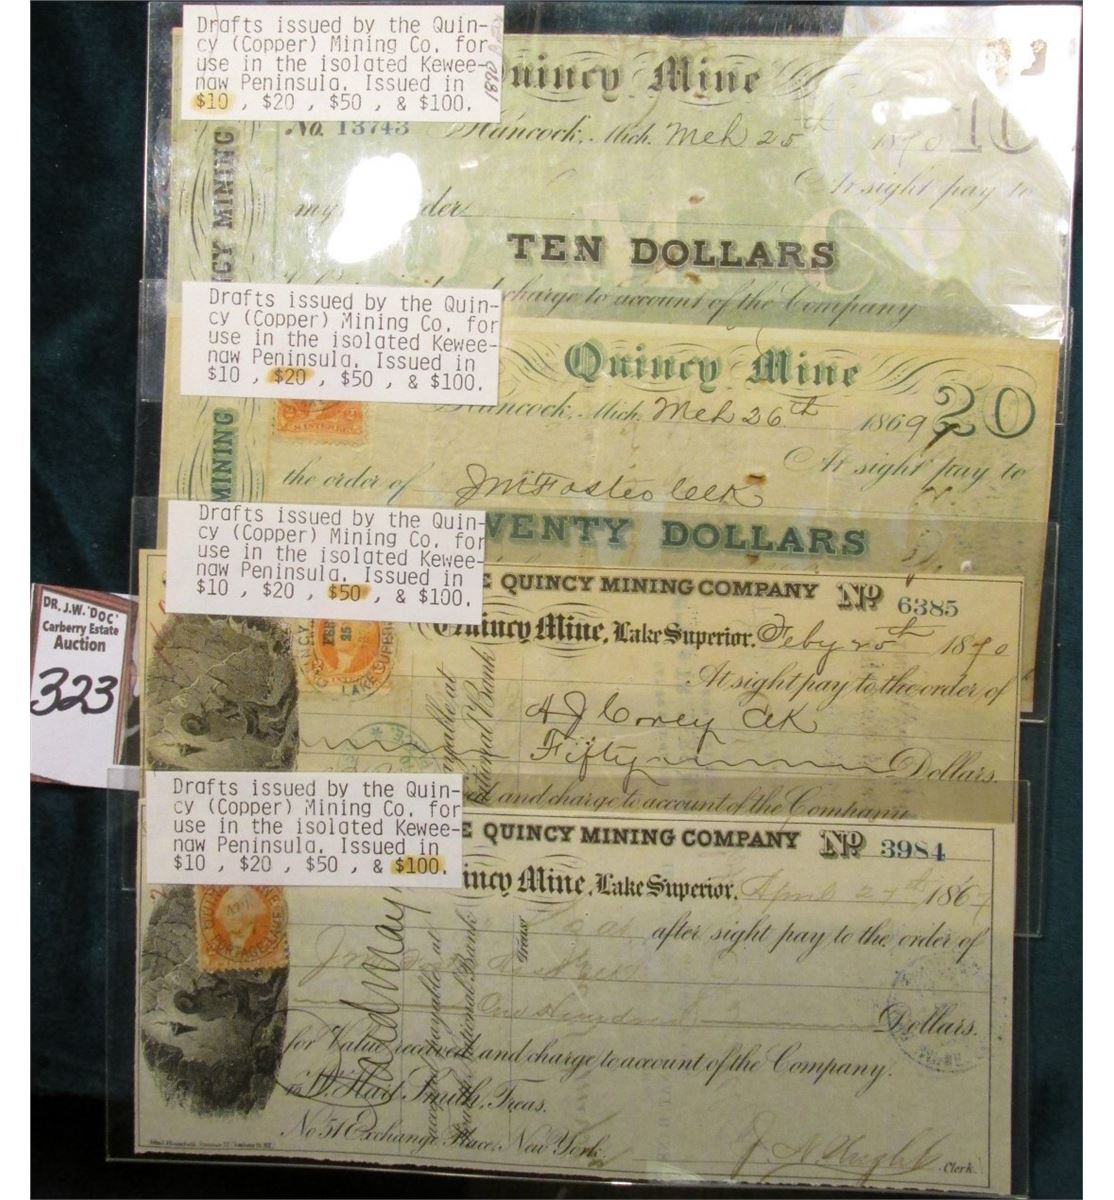 Drafts issued by the Quin-
cy (Copper) Mining Co. for
use in the isolated Kewee-
naw Peninsula. Issued in
$10 , $20 , $50 , & $100.
1870
Quincy Mine
10
No. 13743 Hancock, Mich. Mch 25th 1870
At sight pay to
my order
TEN DOLLARS
charge to account of the Company
MINING
Drafts issued by the Quin-
cy (Copper) Mining Co. for
use in the isolated Kewee-
naw Peninsula. Issued in
$10 , $20 , $50 , & $100.
Quincy Mine
20
Hancock, Mich. Mch 26th 1869
At sight pay to
the order of
TWENTY DOLLARS
MINING
Drafts issued by the Quin-
cy (Copper) Mining Co. for
use in the isolated Kewee-
naw Peninsula. Issued in
$10 , $20 , $50 , & $100.
THE QUINCY MINING COMPANY No 6385
Quincy Mine, Lake Superior. Feby 25th 1870
At sight pay to the order of
A J Corey Clk
Fifty Dollars.
payable at
National Bank
FEB
25
LAKE SUPERIOR
and charge to account of the Company
DR. J.W. "DOC"
Carberry Estate
Auction
323
Drafts issued by the Quin-
cy (Copper) Mining Co. for
use in the isolated Kewee-
naw Peninsula. Issued in
$10 , $20 , $50 , & $100.
THE QUINCY MINING COMPANY No 3984
Quincy Mine, Lake Superior. April 27th 1867
after sight pay to the order of
One Hundred Dollars.
for Value received and charge to account of the Company.
payable at
National Bank
Treas
To W. Hart Smith, Treas.
No 51 Exchange Place, New York.
Clerk.